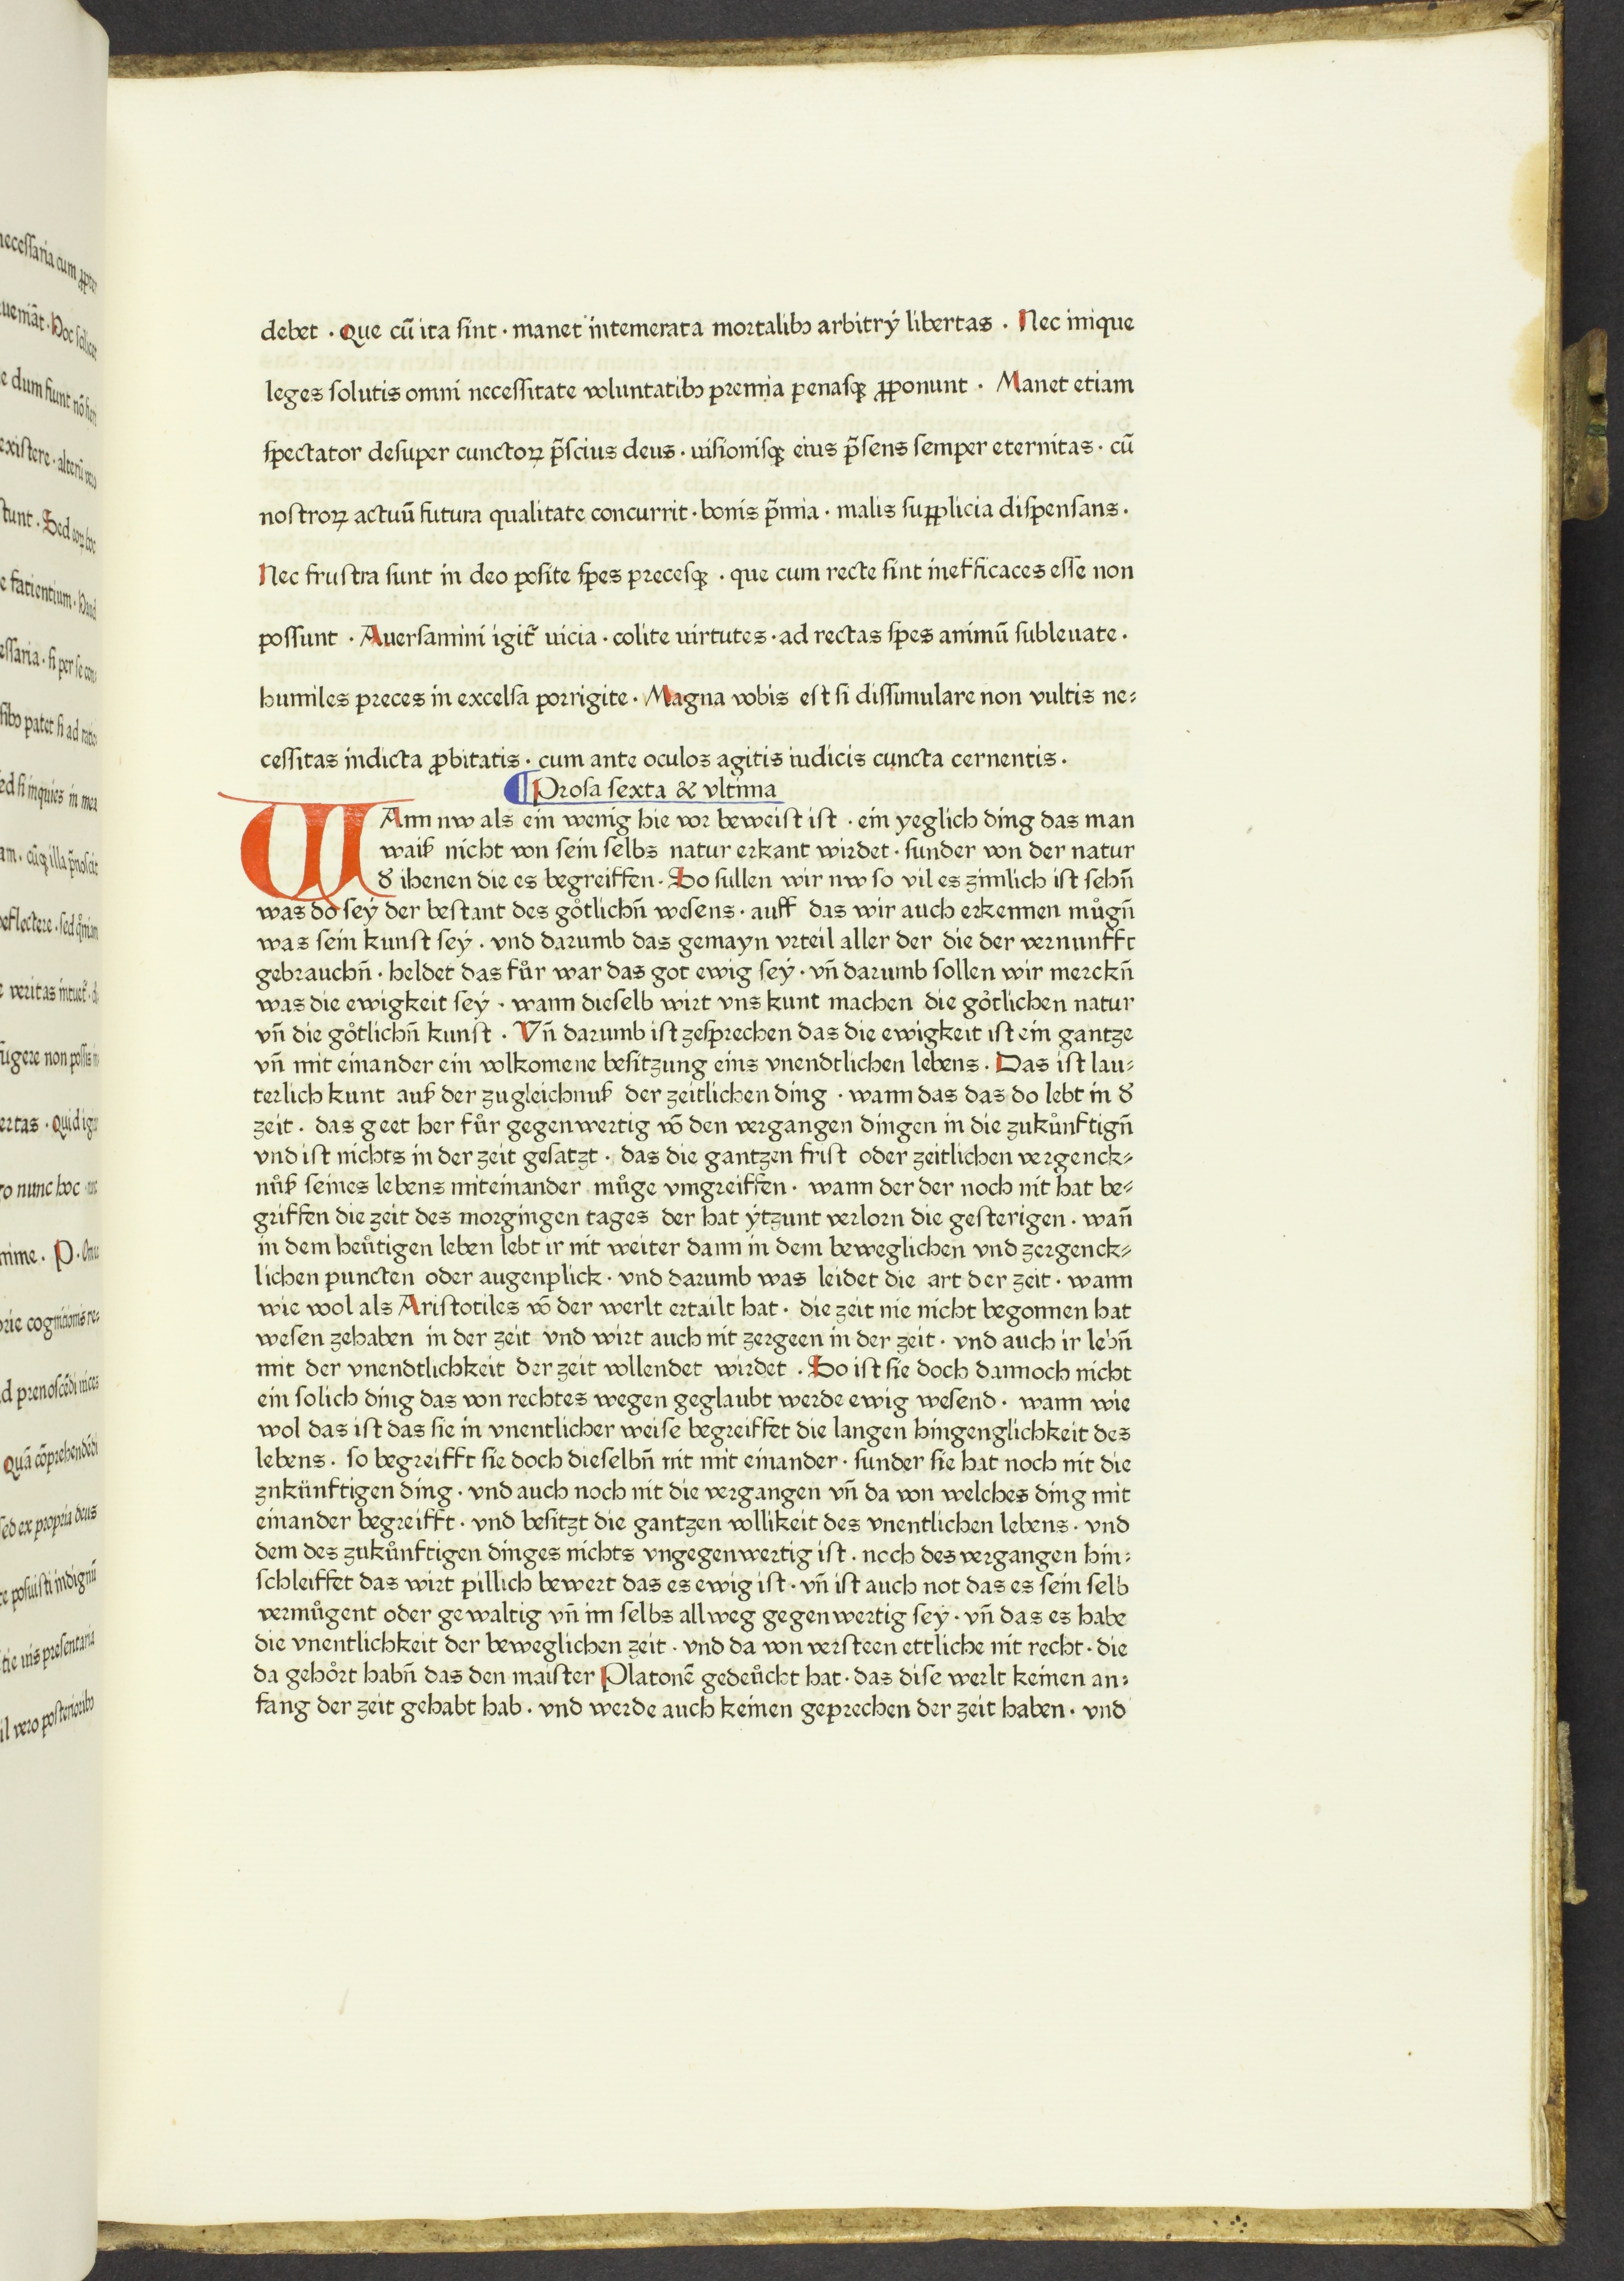 debet · Que cũ ita ſint · manet intemerata moꝛtalibꝫ arbitrÿ libertas · Nec inique
leges ſolutis omni neceſſitate voluntatibꝫ pꝛemia penaſqꝫ ꝓponunt · Manet etiam
ſpectator deſuper cunctoꝝ p̃ſcius deus · uiſioniſqꝫ eius p̃ſens ſemper eternitas · cũ
noſtroꝝ actuũ futura qualitate concurrit · bonis p̃mia · malis ſupplicia diſpenſans ·
Nec fruſtra ſunt in deo poſite ſpes pꝛeceſqꝫ · que cum recte ſint inefficaces eſſe non
poſſunt · Auerſamini igit̃ uicia · colite uirtutes · ad rectas ſpes animũ ſubleuate ·
humiles pꝛeces in excelſa poꝛrigite · Magna vobis eſt ſi diſſimulare non vultis ne⸗
ceſſitas indicta ꝓbitatis · cum ante oculos agitis iudicis cuncta cernentis ·
¶ Pꝛoſa ſexta & vltima
WAnn nw als ein wenig hie voꝛ beweiſt iſt · ein yeglich ding das man
waiß nicht von ſein ſelbs natur erkant wirdet · ſunder von der natur
đ ihenen die es begreiffen · So ſullen wir nw ſo vil es zimlich iſt ſehñ
was do ſey der beſtant des gotlichñ weſens · auff das wir auch erkennen můgñ
was ſein kunſt ſey · vnd darumb das gemayn vꝛteil aller der die der vernunfft
gebꝛauchñ · heldet das fůr war das got ewig ſey · vñ darumb ſollen wir merckñ
was die ewigkeit ſey · wann dieſelb wirt vns kunt machen die gőtlichen natur
vñ die gőtlichñ kunſt · Vñ darumb iſt zeſpꝛechen das die ewigkeit iſt ein gantze
vñ mit einander ein volkomene beſitzung eins vnendtlichen lebens · Das iſt lau⸗
terlich kunt auß der zugleichnuß der zeitlichen ding · wann das das do lebt in đ
zeit · das geet her fůr gegenwertig võ den vergangen dingen in die zukůnftigñ
vnd iſt nichts in der zeit geſatzt · das die gantzen friſt oder zeitlichen vergenck⸗
nůß ſeines lebens miteinander műge vmgreiffen · wann der der noch nit hat be⸗
griffen die zeit des moꝛgingen tages der hat ÿtzunt verloꝛn die geſterigen · wañ
in dem heűtigen leben lebt ir nit weiter dann in dem beweglichen vnd zergenck⸗
lichen puncten oder augenplick · vnd darumb was leidet die art der zeit · wann
wie wol als Ariſtotiles võ der werlt ertailt hat · die zeit nie nicht begonnen hat
weſen zehaben in der zeit vnd wirt auch nit zergeen in der zeit · vnd auch ir lebñ
mit der vnendtlichkeit der zeit vollendet wirdet · So iſt ſie doch dannoch nicht
ein ſolich ding das von rechtes wegen geglaubt werde ewig weſend · wann wie
wol das iſt das ſie in vnentlicher weiſe begreiffet die langen hingenglichkeit des
lebens · ſo begreifft ſie doch dieſelbñ nit mit einander · ſunder ſie hat noch nit die
znkünftigen ding · vnd auch noch nit die vergangen vñ da von welches ding mit
einander begreifft · vnd beſitzt die gantzen vollikeit des vnentlichen lebens · vnd
dem des zukůnftigen dinges nichts vngegenwertig iſt · noch des vergangen hin⸗
ſchleiffet das wirt pillich bewert das es ewig iſt · vñ iſt auch not das es ſein ſelb
vermůgent oder gewaltig vñ im ſelbs allweg gegenwertig ſey · vñ das es habe
die vnentlichkeit der beweglichen zeit · vnd da von verſteen ettliche nit recht · die
da gehőꝛt habñ das den maiſter Platonẽ gedeűcht hat · das diſe werlt keinen an⸗
fang der zeit gehabt hab · vnd werde auch keinen gepꝛechen der zeit haben · vnd